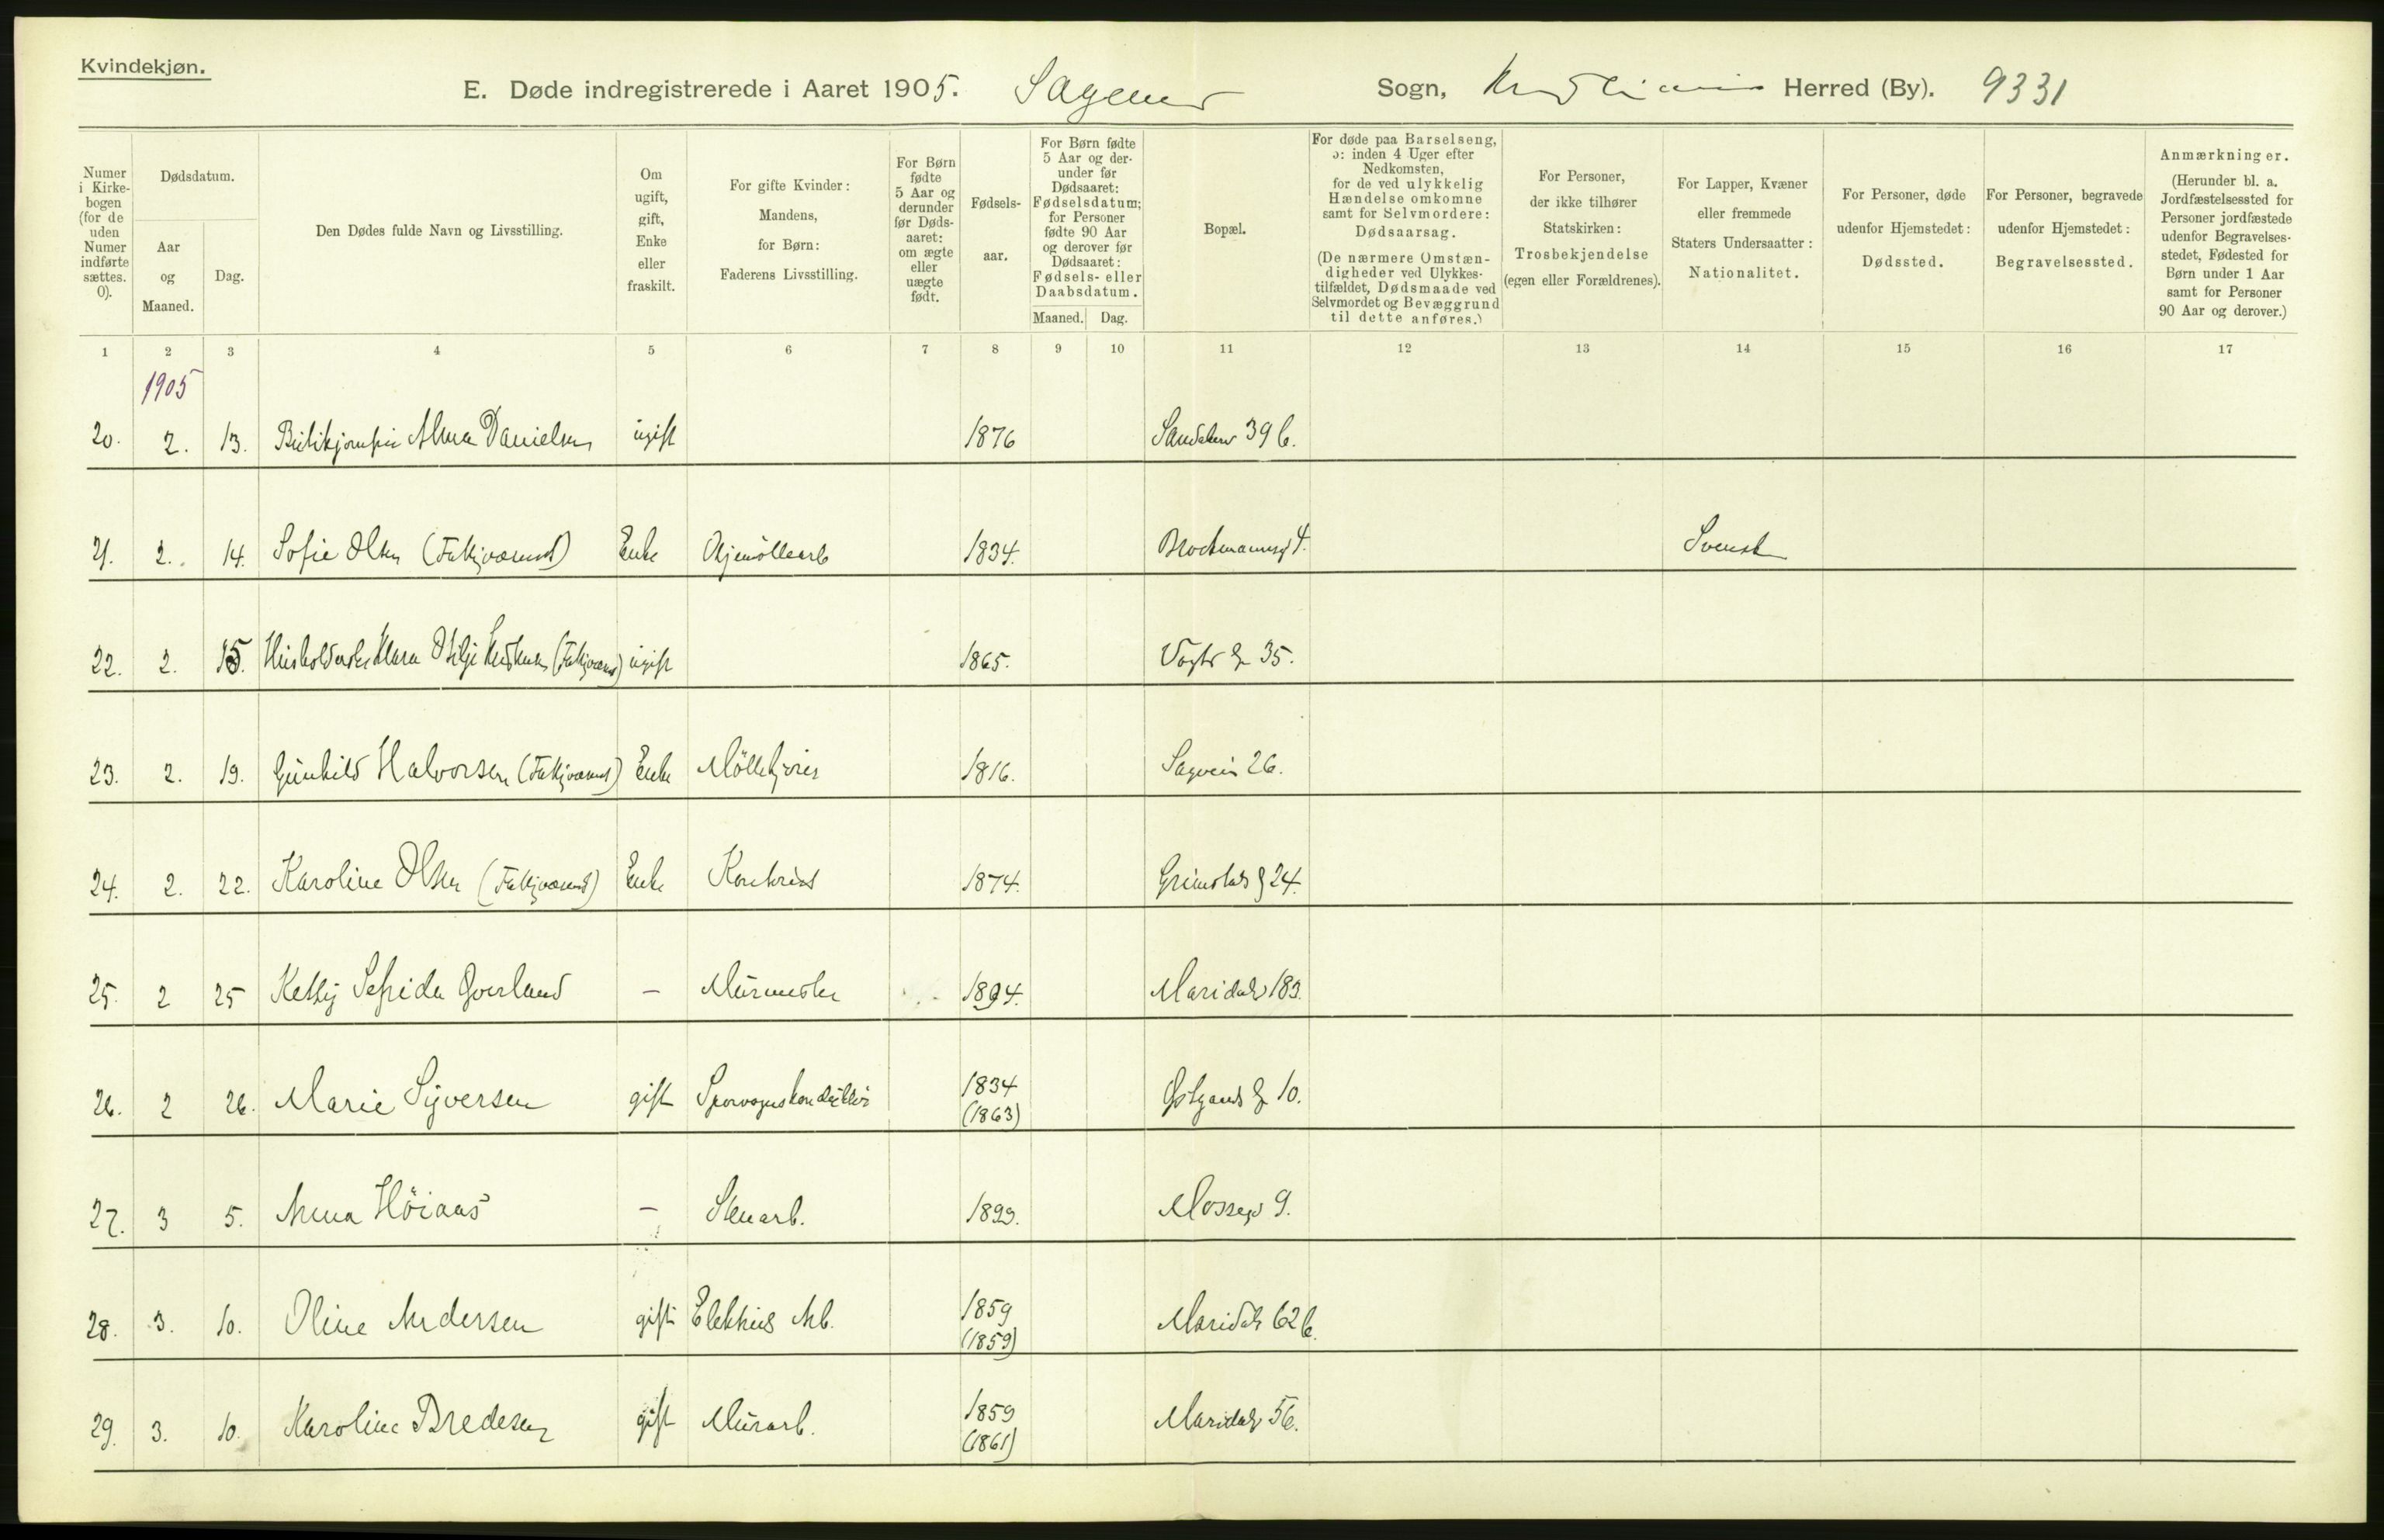 Kvindekjøn.
E. Døde indregistrerede i Aaret 1905. Sagene Sogn, Kristiania Herred (By). 9331
Numer i Kirkebogen (for de uden Numer indførte sættes. 0).
Dødsdatum.
Aar og Maaned.
Dag.
Den Dødes fulde Navn og Livsstilling.
Om ugift, gift, Enke eller fraskilt.
For gifte Kvinder: Mandens, for Børn: Faderens Livsstilling.
For Børn fødte 5 Aar og derunder før Dødsaaret: om ægte eller uægte født.
Fødselsaar.
For Børn fødte 5 Aar og derunder før Dødsaaret: Fødselsdatum; for Personer fødte 90 Aar og derover før Dødsaaret: Fødsels- eller Daabsdatum.
Maaned. Dag.
Bopæl.
For døde paa Barselseng, ɔ: inden 4 Uger efter Nedkomsten, for de ved ulykkelig Hændelse omkomne samt for Selvmordere: Dødsaarsag.
(De nærmere Omstændigheder ved Ulykkestilfældet, Dødsmaade ved Selvmordet og Bevæggrund til dette anføres.)
For Personer, der ikke tilhører Statskirken: Trosbekjendelse (egen eller Forældrenes).
For Lapper, Kvæner eller fremmede Staters Undersaatter: Nationalitet.
For Personer, døde udenfor Hjemstedet: Dødssted.
For Personer, begravede udenfor Hjemstedet: Begravelsessted.
Anmærkninger.
(Herunder bl. a. Jordfæstelsessted for Personer jordfæstede udenfor Begravelsesstedet, Fødested for Børn under 1 Aar samt for Personer 90 Aar og derover.)
1 2 3 4 5 6 7 8 9 10 11 12 13 14 15 16 17
1905
20. 2. 13. Alma Danielsen ugift 1876 39 b.
21. 2. 14. Sofie Olsen (Fatkjvæsenet) Enke 1834. 4. Svensk
22. 2. 15. Klara (Fatkjvæsnet) ugift 1865. Vogts g 35.
23. 2. 19. Gunhild Halvorsen (Fatkjvæsnet) Enke Møllekjører 1816. Sagvein 26.
24. 2. 22. Karoline Olsen (Fatkjvæsenet) Enke 1874. Grimstads g 24.
25. 2 25 Overland – Murmester 1894. Maridals 183.
26. 2 26. Marie Syversen gift Sporvognskonduktør 1834 (1863) Østgaards g 10.
27. 3 5. Anna Höiaas – Stenarb. 1899. Mosseg 9.
28. 3. 10. Oline Andersen gift Arb. 1859 (1859) Maridals 62 b.
29. 3. 10. Karoline Bredesen gift Murarb. 1859 (1861) Maridals 56.